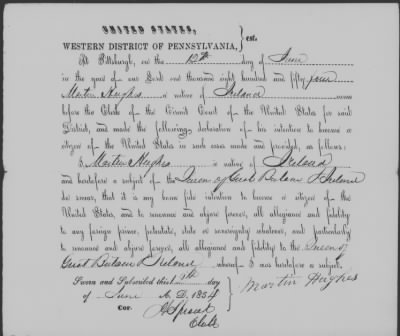 UNITED STATES,
WESTERN DISTRICT OF PENNSYLVANIA, } sct.
At Pittsburgh, on the 12th day of June
in the year of our Lord one thousand eight hundred and fifty four
Martin Hughes a native of Ireland came
before the Clerk of the Circuit Court of the United States for said
District, and made the following declaration of his intention to become a
citizen of the United States in such cases made and provided, as follows:
I, Martin Hughes a native of Ireland
and heretofore a subject of the Queen of Great Britain & Ireland
do swear, that it is my bona fide intention to become a citizen of the
United States and to renounce and abjure forever, all allegiance and fidelity
to any foreign prince, potentate, state or sovereignty whatever, and particularly
to renounce and abjure forever, all allegiance and fidelity to the Queen of
Great Britain & Ireland whereof I was heretofore a subject.
Sworn and Subscribed this day
of June A. D. 1854
Martin Hughes
Cor.
Clerk